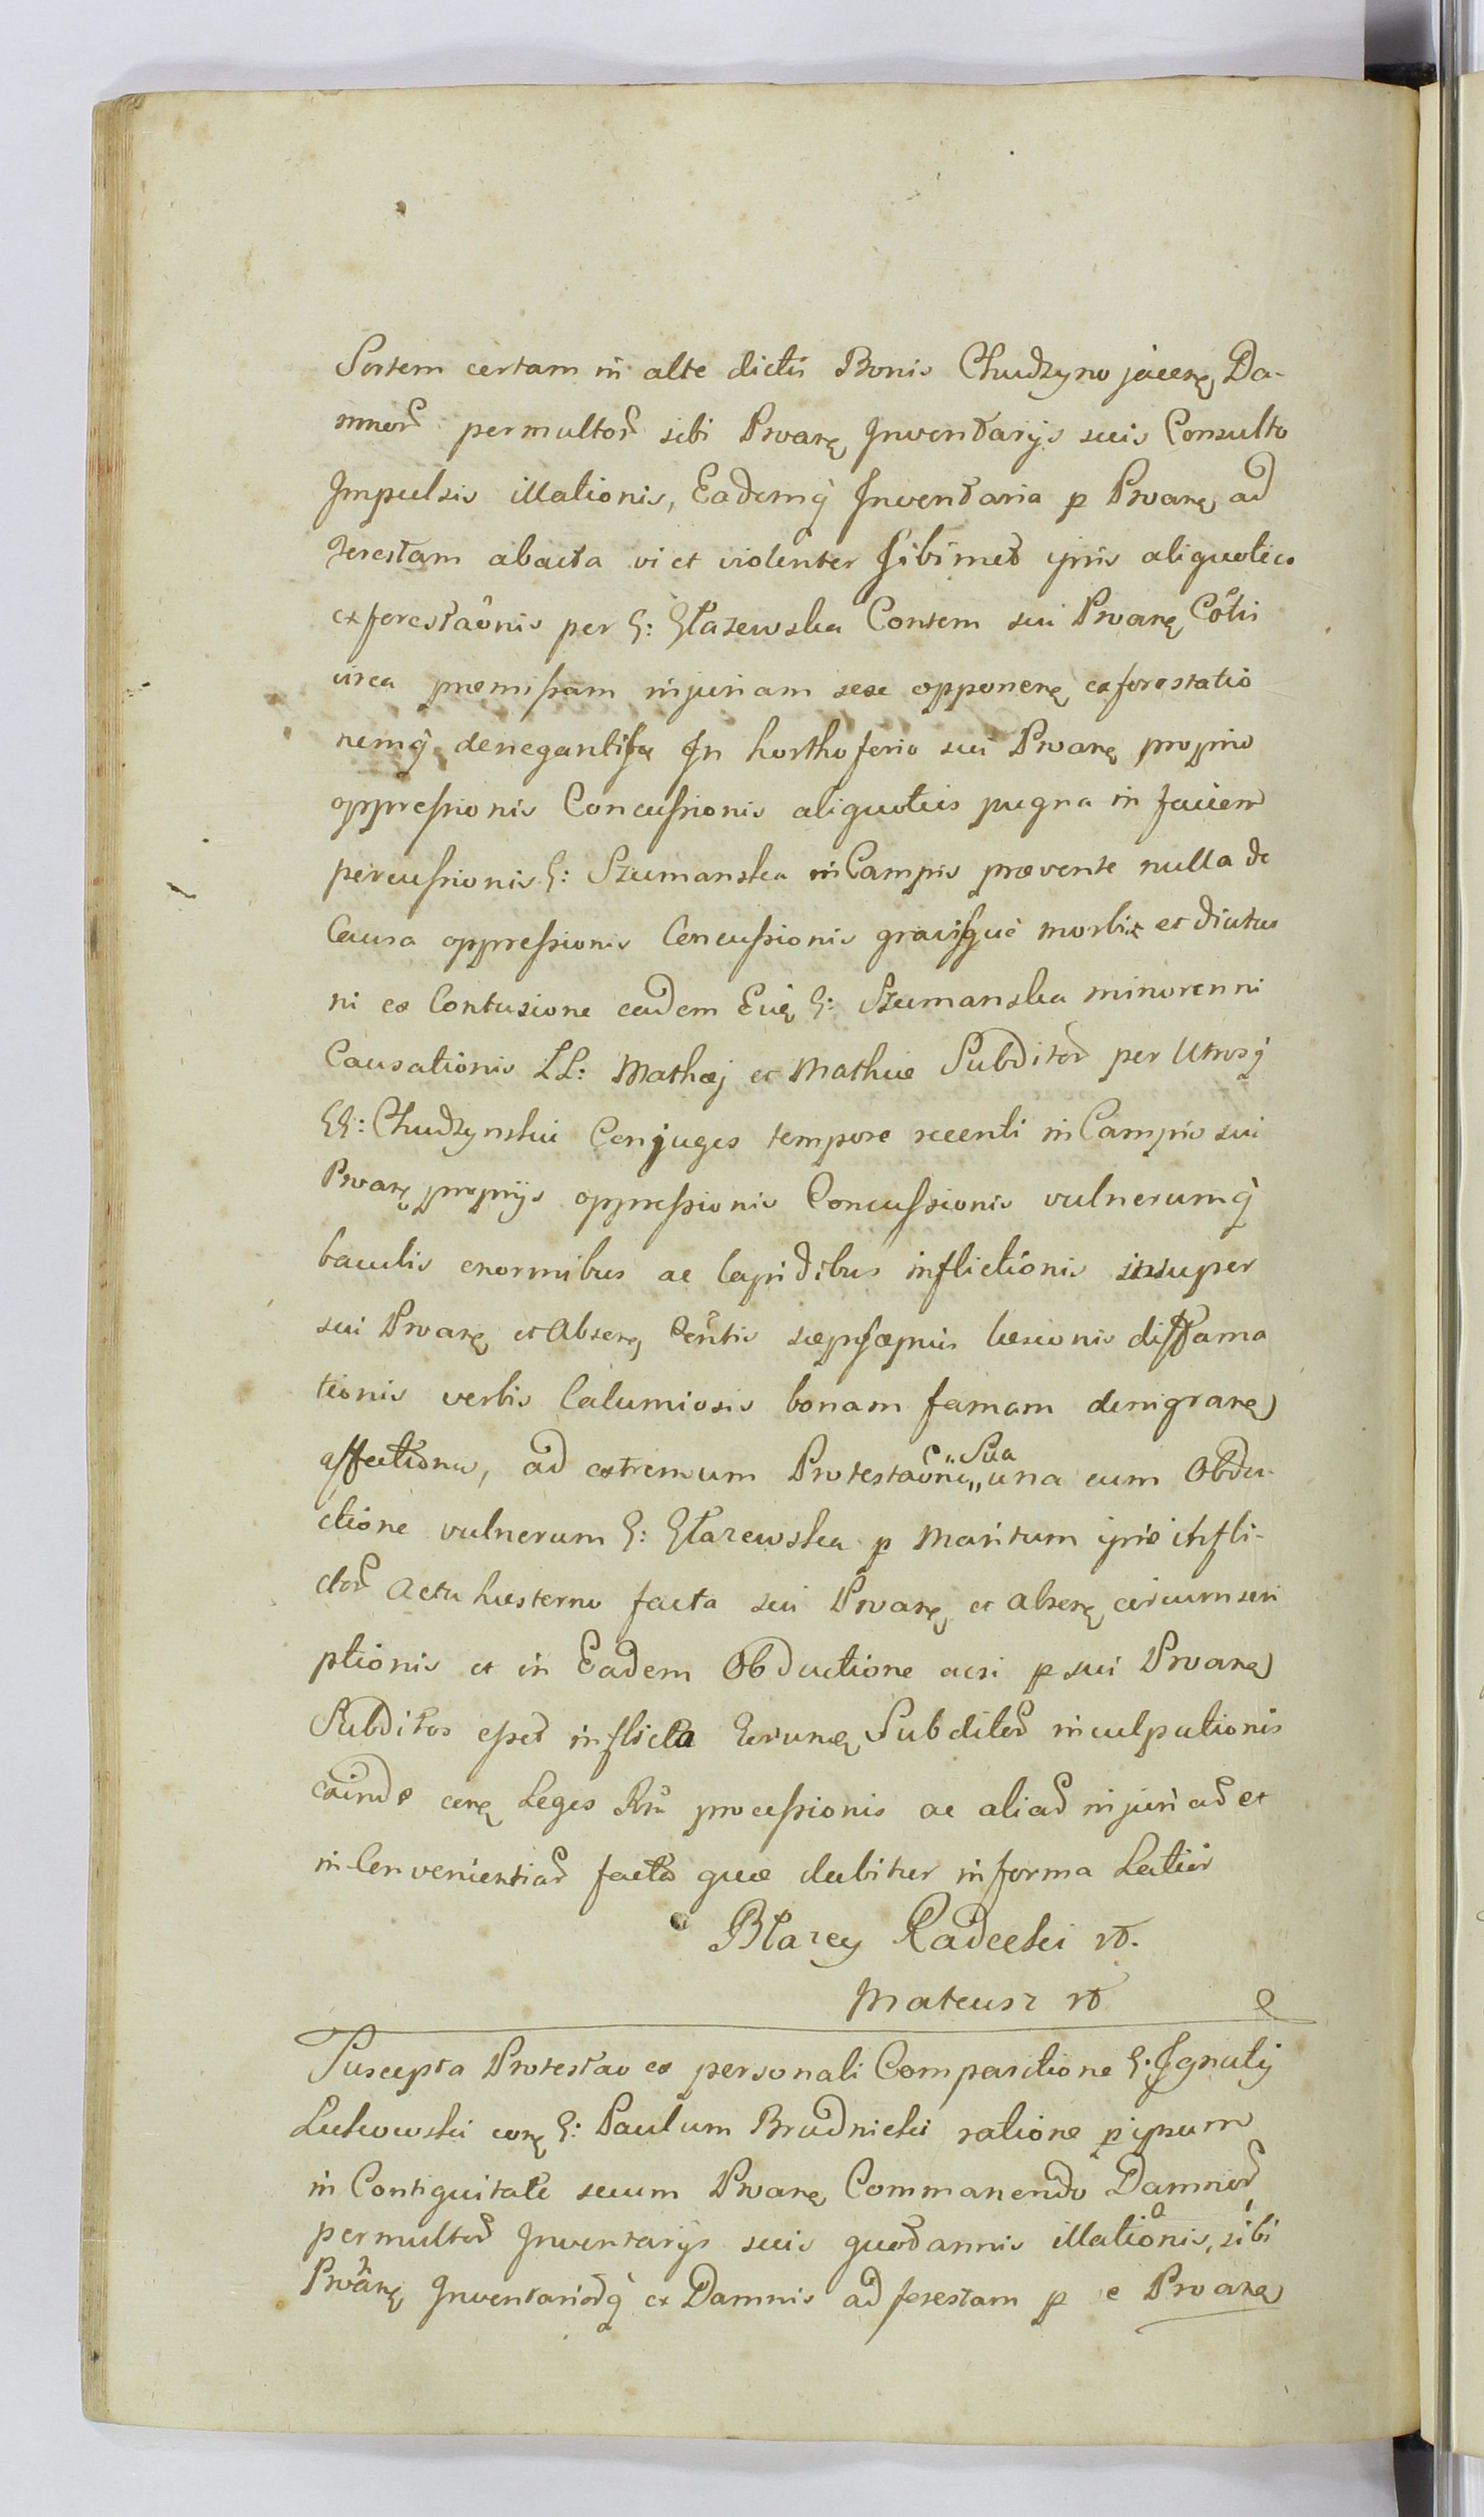 Sortem certam in alte dictis Bonis Chudzyno jacenę Da-
mnor permultor sibi Proanę Inventarijs suis Consulto
Impulsis illationis, Eademq Inventaria p Proanę ad
ferestam abacta vi et violenter sibimet ipsis aliquoties
exforestaõnis per G: Głazewska Consem sui Proanę Cõtis
circa præmissam injuriam sese opponenę exforestatio
nemq denegantisq In horthoferio sui Proanę proprio
oppressionis Concussionis aliquoties pugna in faciem
percussionis G: Szumanska in Campis prævente nulla de
Causa oppressionis Concussionis gravisque morbi et diutur
ni ex Contusione eadem Evę G: Szumanska minorenni
Causationis LL: Mathæj et Mathiæ Subditor per Utrosq
GG: Chudzynskie Conjuges tempore recenti in Campis sui
Proanę proprijs oppressionis Concussionis vulnerumq
baculis enormibus ac lapidibus inflictionis insuper
sui Proanę et Absenę sæpisæpius læsionis diffama
tionis verbis Calumiosis bonam famam denigranę
affectionis, ad extremum Protestaõne Sua una cum Obdu-
ctione vulnerum G: Głazewska p Maritum ipsie infli-
ctor Actu hesterno facta sui Proanę et absenę circumscri
ptionis et in Eadem Obductione acsi p sui Proanę
Subditos esset inflicta Eorunę Subditor inculpationis
exinde cenę Leges Rni processionis ac aliar injuriar et
inConvenientiar facta quæ dabitur in forma Latius
Błazey Radecki rt.
Mateusz rt
Suscepta Protestao ex personali Comparitione G: Ignatij
Lutkowski conę G: Paulum Brudnicki ratione p ipsum
in Contiguitate secum Proanę Commanendo Damnor
permultor Inventarijs suis quodannis illationis, sibi
Proanę Inventariorq ex Damnis ad ferestam p e Proanę